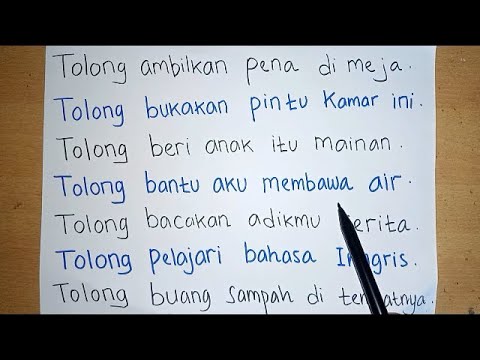 Tolong ambilkan pena di meja.
Tolong bukakan pintu kamar ini.
Tolong beri anak itu mainan.
Tolong bantu aku membawa air.
Tolong bacakan adikmu
Tolong pelajari bahasa Inggris.
Tolong buang sampah di tempatnya.